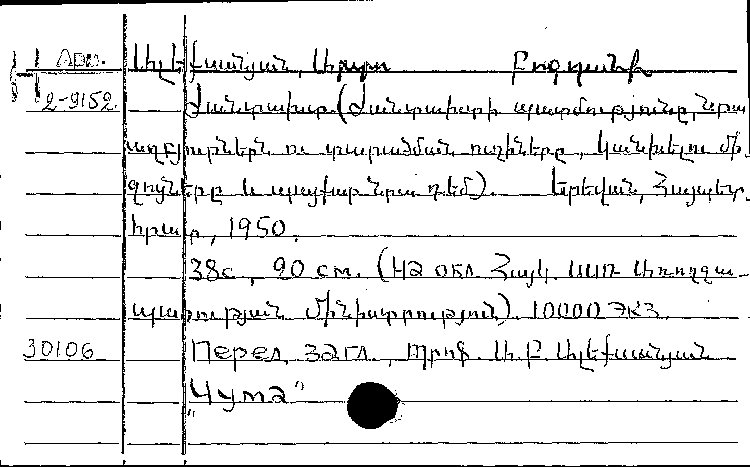 Арм. Ալեքսանյան, Արտյո Բոգդանի
2-9152. Ժանտախտ (Ժանտախտի պատմությունը, նրա
աղբյուրներն ու տարածման ուղիները, կանխելու մի-
ջոցները և պայքար նրա դեմ). Երեվան, Հայպետ-
հրատ, 1950.
38с., 20 см. (На обл. Հայկ. ՍՍՌ Առողջա-
պահության Մինիստրություն). 10000 экз.
30106 Перед загл., Պրոֆ. Ա. Բ. Ալեքսանյան
"Чума"